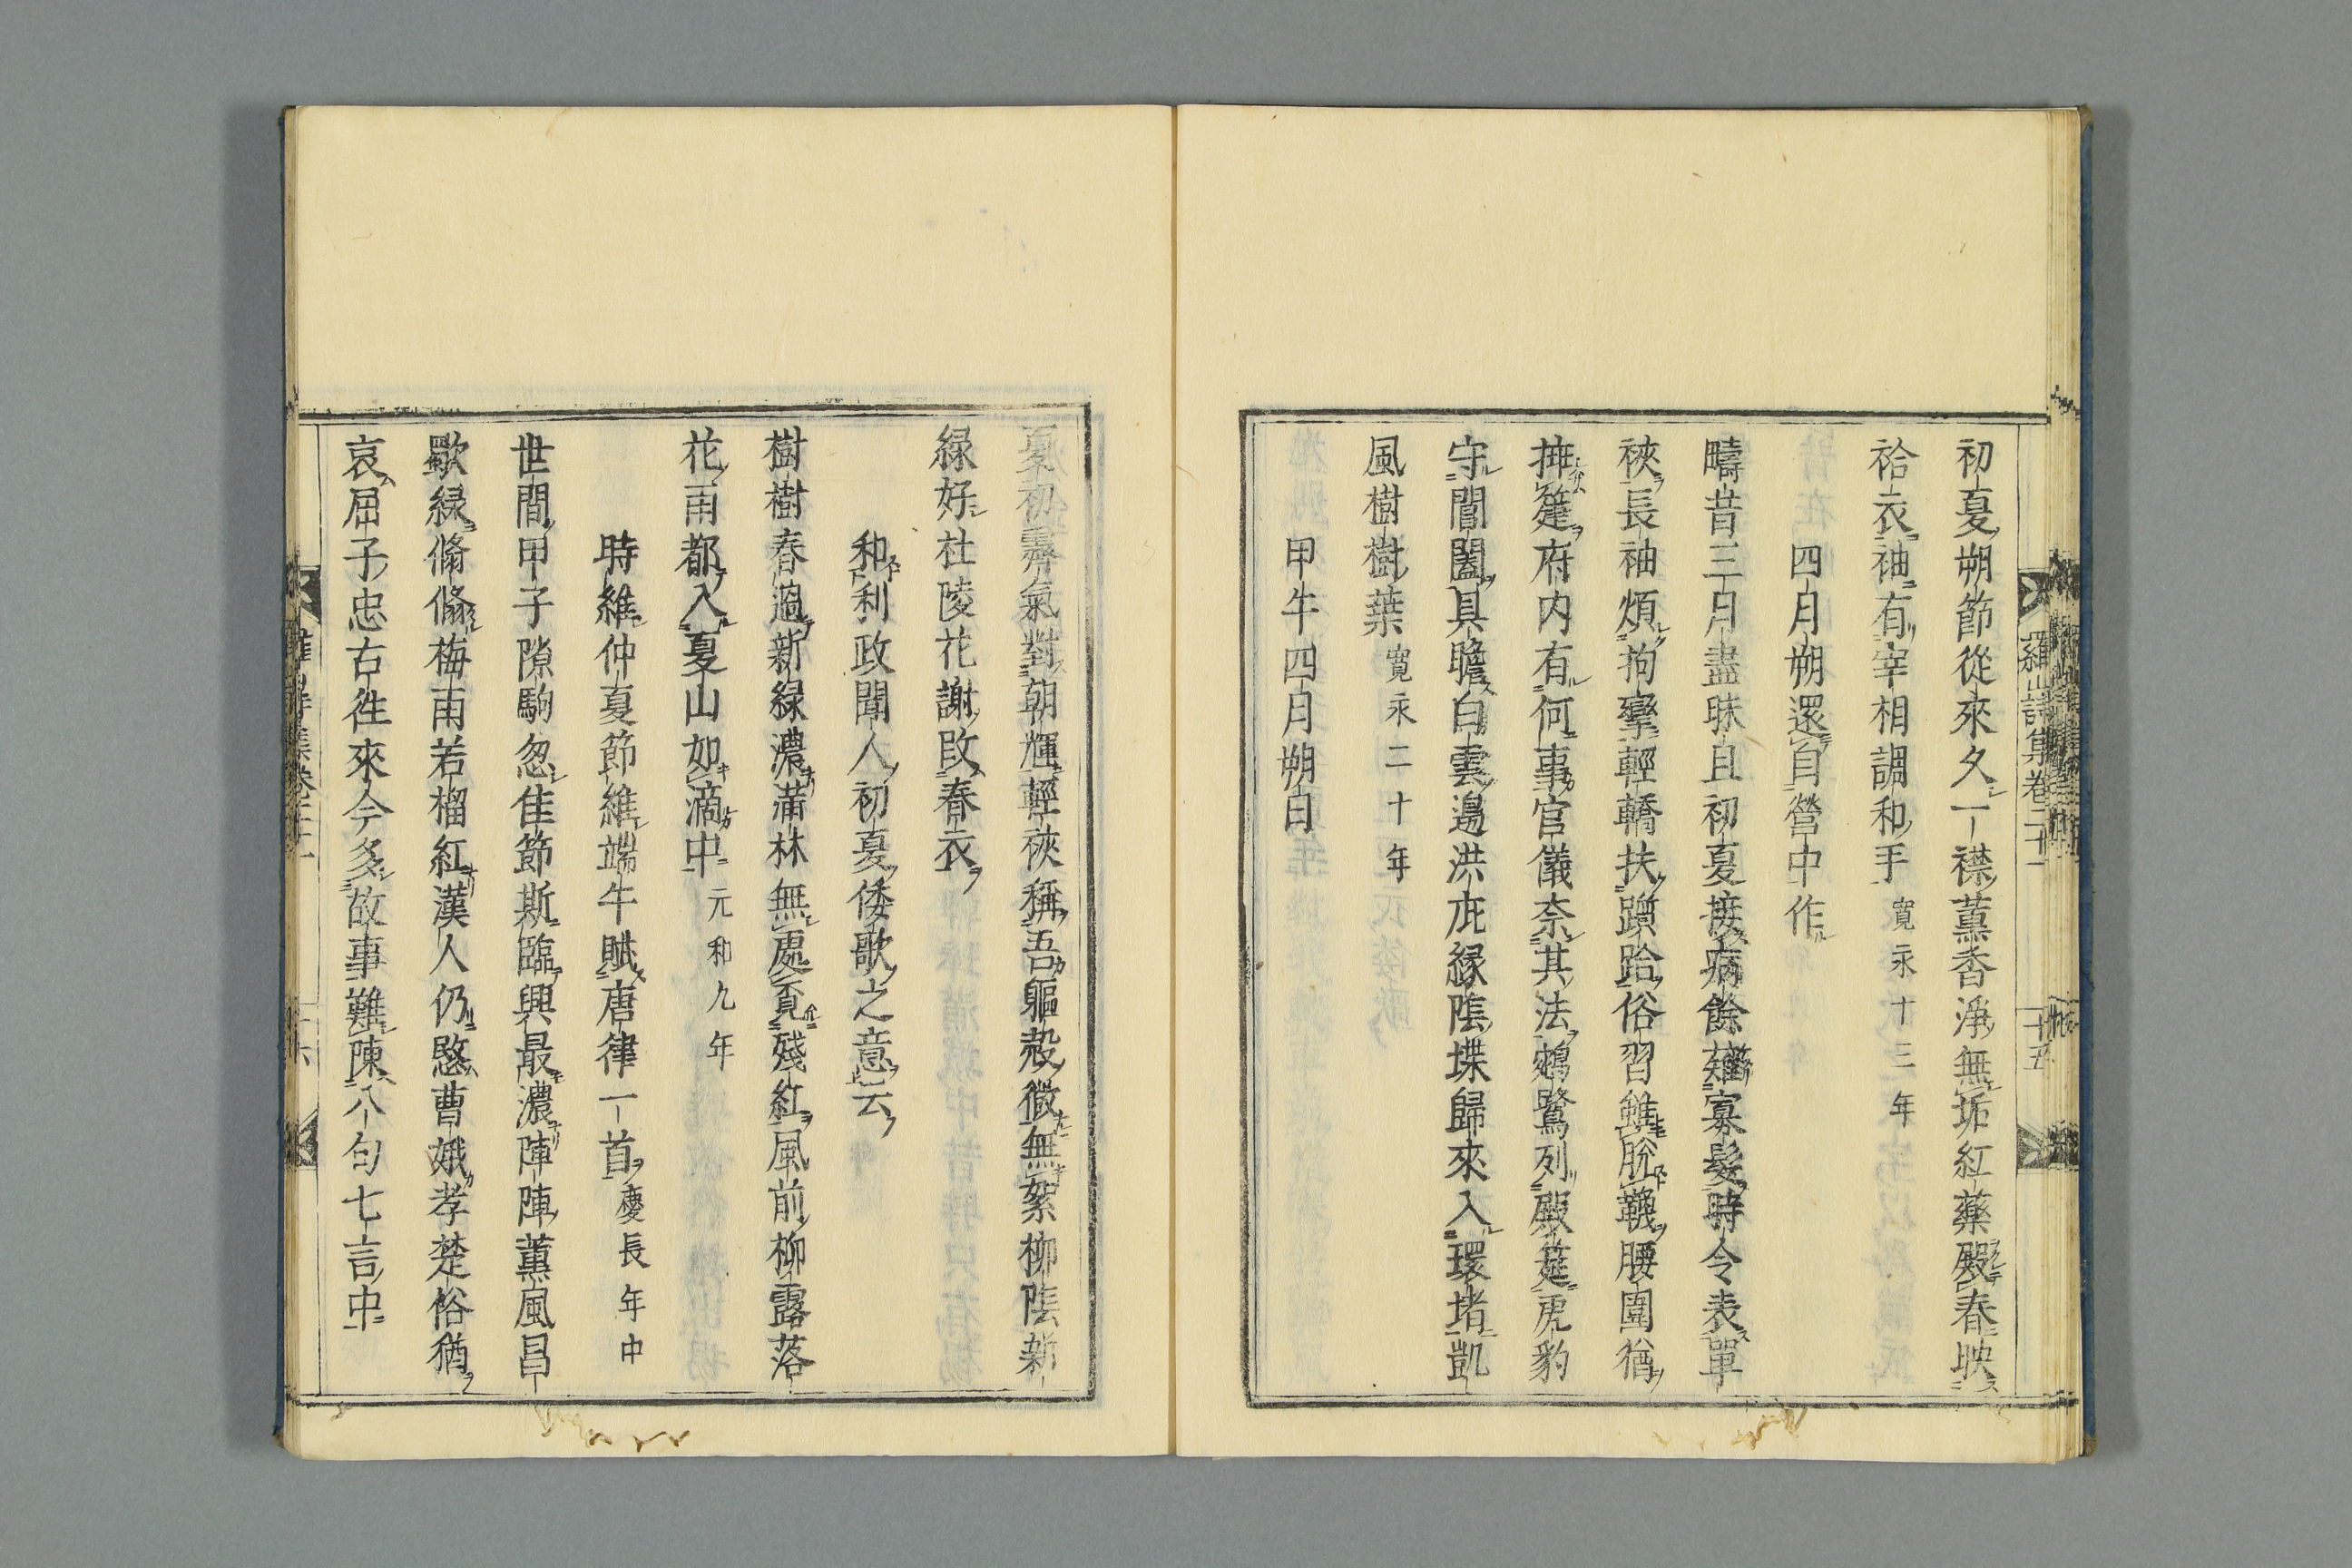 初夏朔節從來久一襟薰香淨無垢紅藥殿春映
袷衣袖有宰相調和手寛永十三年
四月朔還自營中作
疇昔三月盡昧且初夏接病餘薙寡髮時令表單
裌長袖煩拘攣輕轎扶躓跲俗習雖脫韈腰圍猶
搢箑府内有何事官儀奈其法鵷鷺列殿筵虎豹
守閶闔具瞻白雲邊洪庇緑陰堞歸來入環堵凱
風樹樹葉寛永二十年
甲午四月朔日
夏初霽氣對朝輝輕裌稱吾軀殼微無絮柳陰新
緑好杜陵花謝改春衣
和利政聞人初夏倭歌之意云
樹樹春過新緑濃蒲林無處覓殘紅風前柳露落
花雨都入夏山如滴中元和九年
時維仲夏節維端午賦唐律一首慶長年中
世間甲子隙駒忽佳節斯臨興最濃陣陣薰風昌
歜緑脩脩梅雨若榴紅漢人仍愍曹娥孝楚俗猶
哀屈子忠古徃來今多故事難陳八句七言中
羅山詩集卷二十一
十五